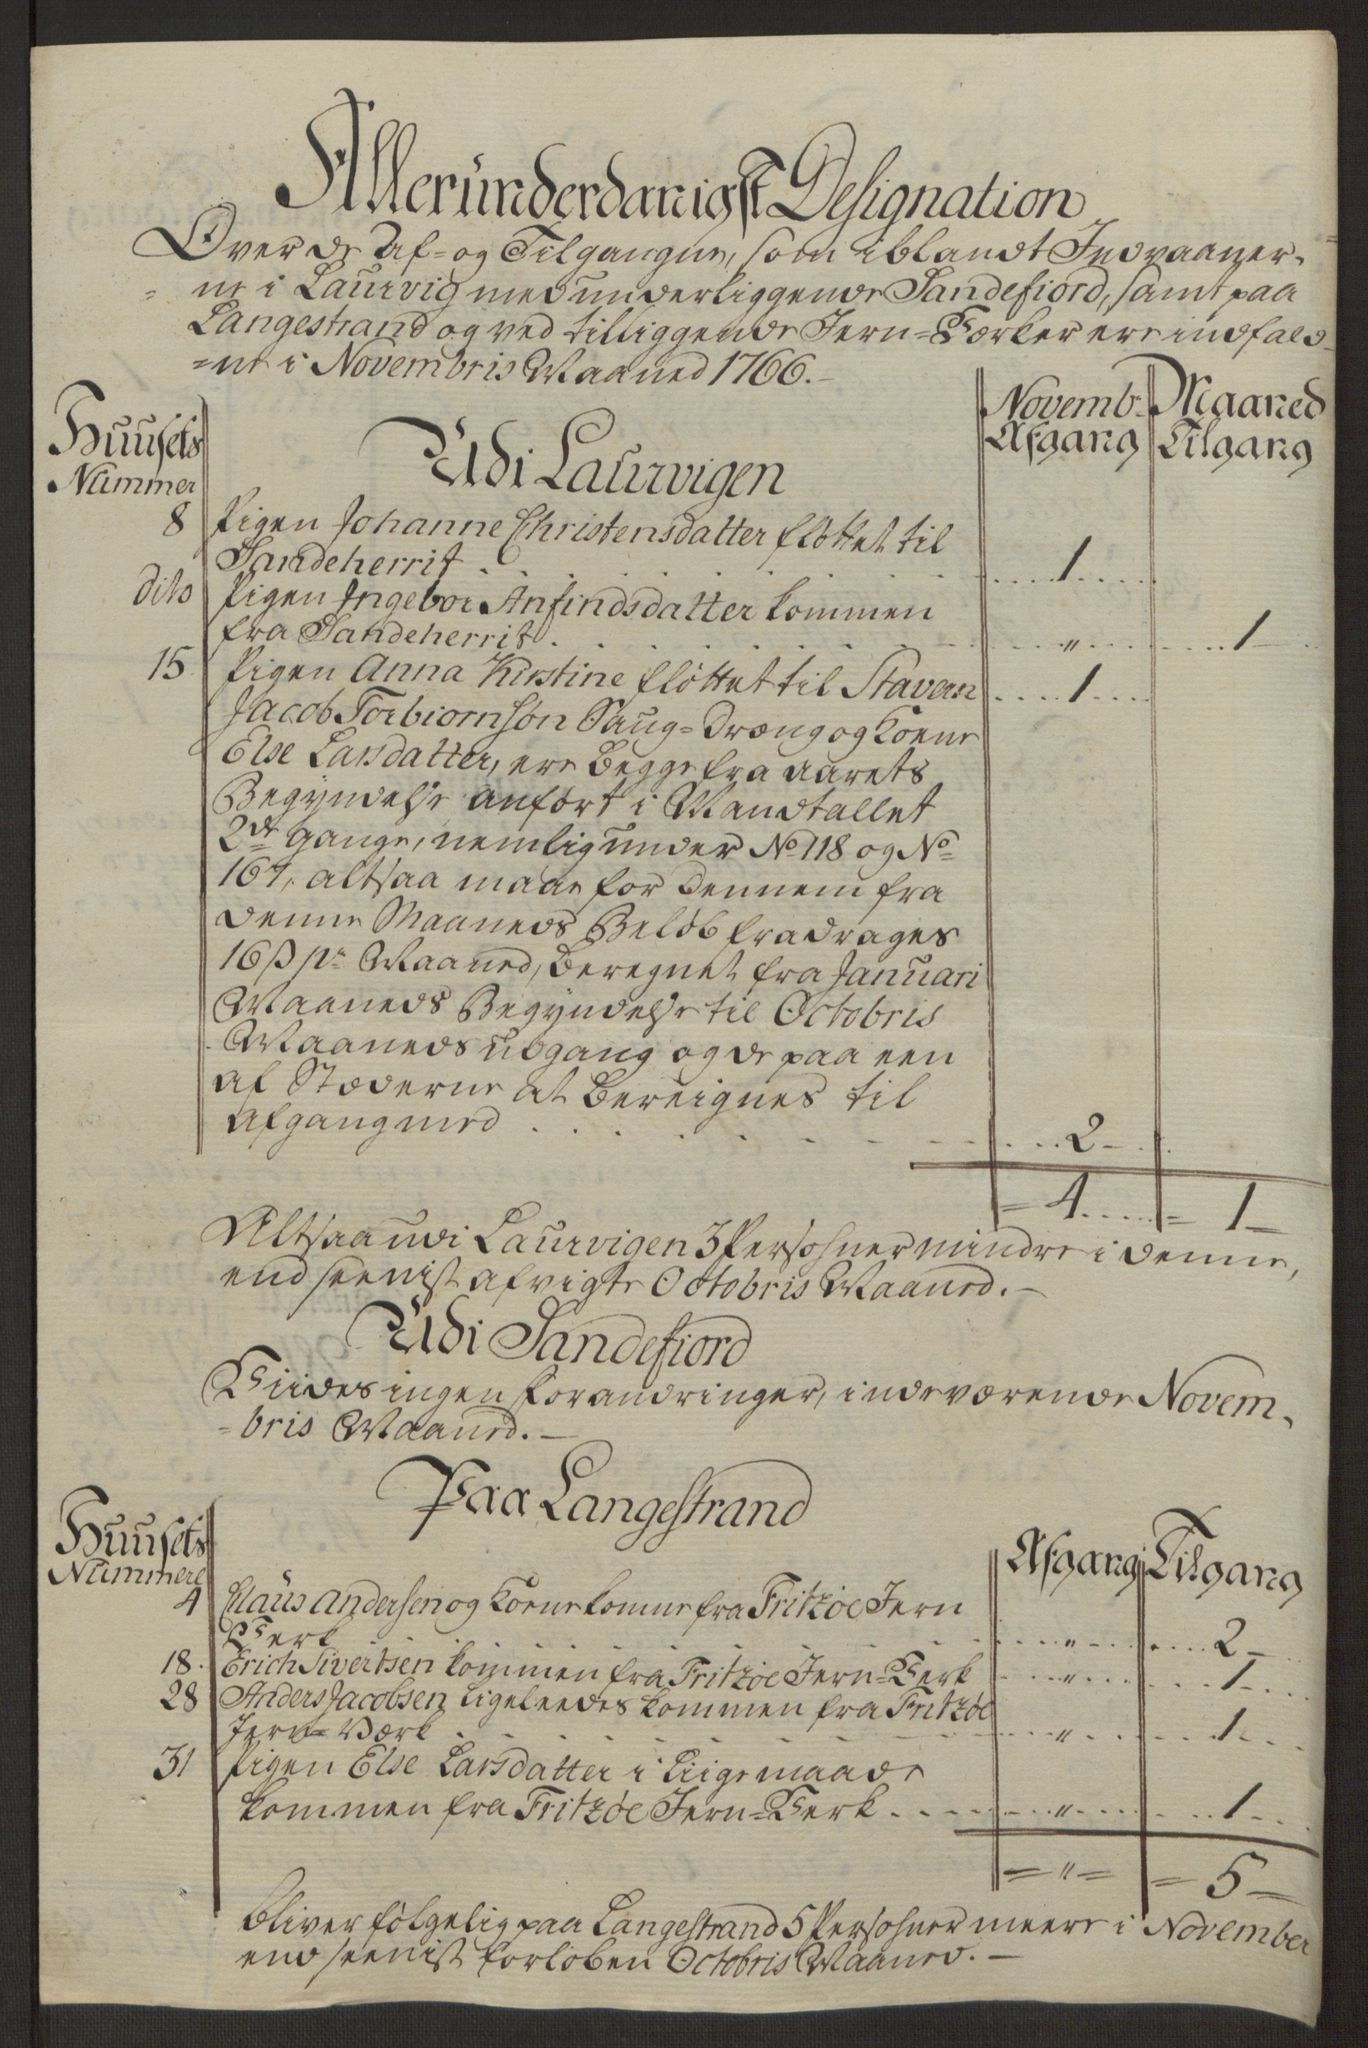 Allerunderdanigst Designation
Over de Af= og Tilgange, som iblandt Indvaaner-
=ne i Laurvig med underliggende Sandefiord, samt paa
Langestrand og ved tilliggende Jern=Værker ere indfald-
=ne i Novembris Maaned 1766.-
Huusets
Nummer
Novemb: Maaned
Afgang Tilgang
Udi Laurvigen
8 Pigen Johanne Christensdatter fløttet til
Sandeherrit . . . . 1 . . . .
dito Pigen Ingebor Anfindsdatter kommen
fra Sandeherrit . . . . " . . . . 1
15 Pigen Anna Kirstine fløttet til Stavern . . . . 1 . . . .
Jacob Torbiornsøn Saug=Dræng og Kone
Else Larsdatter, ere begge fra aarets
Begyndelse anført i Mandtallet
2de gange, nemlig under No 118 og No
164, altsaa maae for dennem fra
denne Maaneds Beløb fradrages
16 β pr Maaned, beregnet fra Januari
Maaneds Begyndelse til Octobris
Maaneds udgang og de paa een
af Stæderne at bereignes til
afgang med . . . . 2
= 4 . . . . = 1 -
Altsaa udi Laurvigen 3 Persohner mindre i denne,
end seenist afvigte Octobris Maaned.-
Udi Sandefiord
Viides ingen forandringer, indeværende Novem-
=bris Maaned.-
Paa Langestrand
Huusets
Nummere
Afgang Tilgang
4 Claus Andersen og Kone komne fra Fritzøe Jern
Verk . . . . " . . . . 2 -
18. Erich Sivertsen kommen fra Fritzøe Jern=Verk . . . . " . . . . 1
28 Anders Jacobsen ligeleedes kommen fra Fritzøe
Jern=Værk . . . . " . . . . 1
31 Pigen Else Larsdatter i liigemaade
kommen fra Fritzøe Jern=Verk . . . . " . . . . 1
= " = = 5 -
bliver følgelig paa Langestrand 5 Persohner meere i November
end seenist forløben Octobris Maaned.-